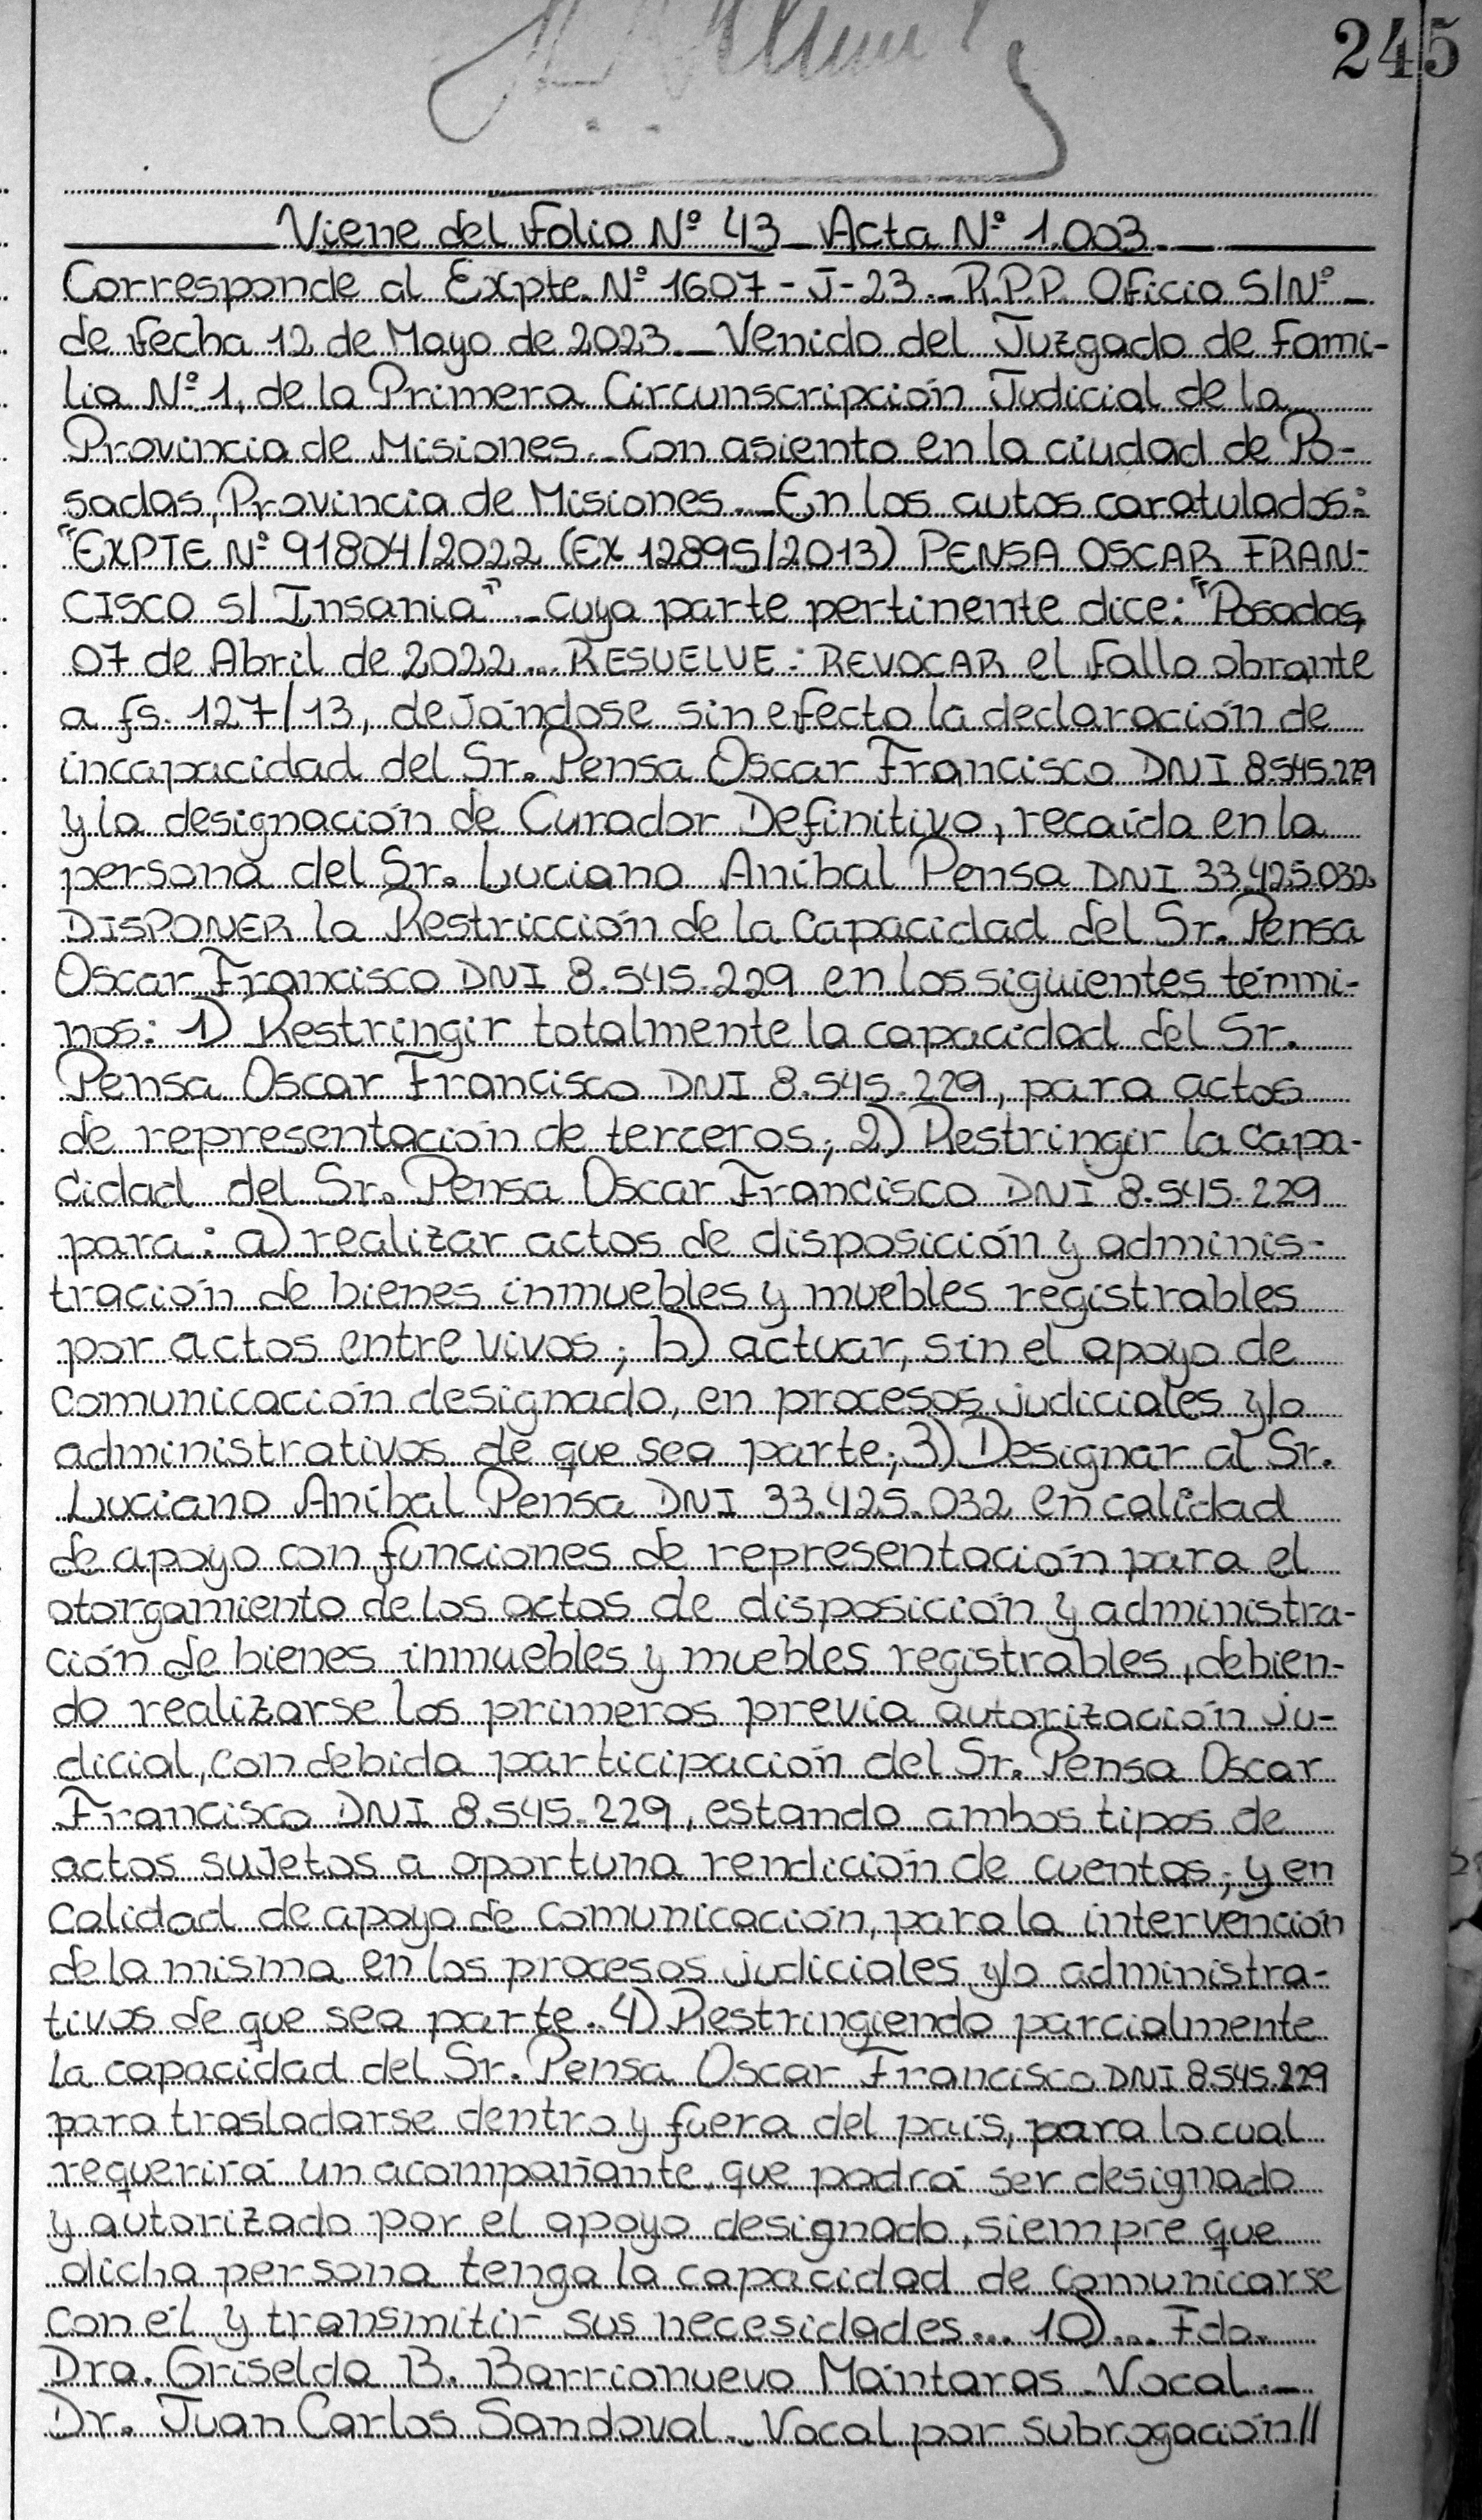 245
Viene del Folio Nº 43 _ Acta Nº 1.003._
Corresponde al Expte. Nº 1607 - J - 23 ._ R.P.P. Oficio S/Nº _
de fecha 12 de Mayo de 2023._ Venido del Juzgado de Fami-
lia Nº 1, de la Primera Circunscripción Judicial de la
Provincia de Misiones._ Con asiento en la ciudad de Po-
sadas, Provincia de Misiones._ En los autos caratulados:
"EXPTE Nº 91804/2022 (EX 12895/2013) PENSA OSCAR FRAN-
CISCO s/ Insania" _ cuya parte pertinente dice: "Posadas,
07 de Abril de 2022... RESUELVE: REVOCAR el fallo obrante
a fs. 127/13, dejándose sin efecto la declaración de
incapacidad del Sr. Pensa Oscar Francisco DNI 8.545.229
y la designación de Curador Definitivo, recaída en la
persona del Sr. Luciano Aníbal Pensa DNI 33.425.032.
DISPONER la Restricción de la Capacidad del Sr. Pensa
Oscar Francisco DNI 8.545.229 en los siguientes térmi-
nos: 1) Restringir totalmente la capacidad del Sr.
Pensa Oscar Francisco DNI 8.545.229, para actos
de representación de terceros; 2) Restringir la capa-
cidad del Sr. Pensa Oscar Francisco DNI 8.545.229
para: a) realizar actos de disposición y adminis-
tración de bienes inmuebles y muebles registrables
por actos entre vivos; b) actuar, sin el apoyo de
comunicación designado, en procesos judiciales y/o
administrativos de que sea parte; 3) Designar al Sr.
Luciano Aníbal Pensa DNI 33.425.032 en calidad
de apoyo con funciones de representación para el
otorgamiento de los actos de disposición y administra-
ción de bienes inmuebles y muebles registrables, debien-
do realizarse los primeros previa autorización ju-
dicial, con debida participación del Sr. Pensa Oscar
Francisco DNI 8.545.229, estando ambos tipos de
actos sujetos a oportuna rendición de cuentas; y en
calidad de apoyo de comunicación, para la intervención
de la misma en los procesos judiciales y/o administra-
tivos de que sea parte. 4) Restringiendo parcialmente
la capacidad del Sr. Pensa Oscar Francisco DNI 8.545.229
para trasladarse dentro y fuera del país, para lo cual
requerirá un acompañante, que podrá ser designado
y autorizado por el apoyo designado, siempre que
dicha persona tenga la capacidad de comunicarse
con él y transmitir sus necesidades... 10)... Fdo.
Dra. Griselda B. Barrionuevo Mántaras. Vocal._
Dr. Juan Carlos Sandoval._ Vocal por subrogación//